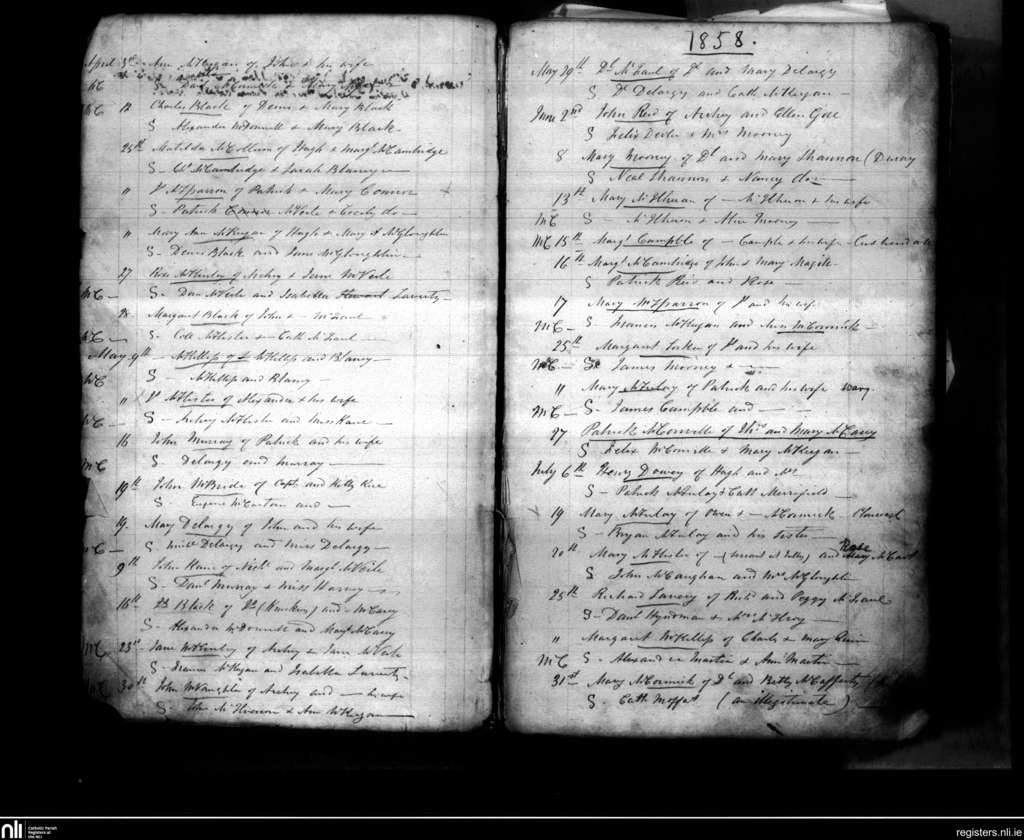 April 3d Ann McKeegan of John & his wife
MC
MC 12 Charles Black of Denis & Mary Black
S Alexander McDonnell & Mary Black
25th Matilda McCollum of Hugh & Margt McCambridge
S - McCambridge & Sarah Blaney
" Pt McSparron of Patrick & Mary Connor
S - Patrick McVeile & Cecily do -
" Mary Ann McKeegan of Hugh & Mary A McGloughlin
S - Denis Black and Jane McGloughlin
27 Rose McKinley of Archey & Jane McVeile
MC - S - Dan McVeile and Isabella Laverty -
28 Margaret Black of John & - McFaul
MC - S - McAlister & Cath McFaul
May 9th - McKillop of - McKillop and Blaney -
MC S - McKillop and Blaney -
" McAlister of Alexander & his wife
MC - S - Archey McAlister and Miss Kane -
16 John Murray of Patrick and his wife
MC S - Delargy and Murray -
19th John McBride of Capt and Kitty Kine
S Eugene McCartan and -
19 Mary Delargy of John and his wife
MC - S Delargy and Miss Delargy -
9th John Kane of Neil and Margt McVeile
S - Danl Murray & Miss Harvey -
16th Black of and - McCarey
S - Alexander McDonnell and Margt McCarey
MC 23d Jane McKinley of Archey & Jane McVeile
S - Francis McKegan and Isabella Laverty -
30th John McVaughter of Archey and - his wife
S - John McIlvernon & Ann McKeegan
1858.
May 29th Dl McFaul of Dl and Mary Delargy
S Delargy and Cath McKeegan -
June 2nd John Reid of Archey and Ellen Gore
S Felix Devlin & Mrs Mooney
8 Mary Mooney of Dl and Mary Shannon
S Neal Shannon & Nancy do -
13th Mary McIlhernon of - McIlhernon & his wife
MC S - McIlhernon & Alice Mooney -
MC 15th Margt Campble of - Campble & his wife -
16th Margt McCambridge of John & Mary Magill
S Patrick Reid and Rose -
17 Mary McSparron of Pt and his wife
MC - S Francis McKeegan and Ann McCormick -
25th Margaret of Pt and his wife
MC - S James Mooney & -
" Mary McAulay of Patrick and his wife
MC - S - James Campble and -
27 Patrick McConville of and Mary McCarey
S Felix McConville & Mary McKeegan -
July 6th Henry Dowey of Hugh and Ms
S - Patrick McAulay & Cath Merryfield -
19 Mary McAulay of Owen & - McCormick -
S - Bryan McAulay and his sister -
20th Mary McAlister of - (servant at) and Rose McCart
S John McCaughan and Mrs McGloughlin
25th Richard Lavery of Richd and Peggy McFaul
S - Danl Hyndman & Mrs McIlroy -
" Margaret McKillop of Charles & Mary
MC S - Alexander Martin & Ann Martin -
31st Mary McCormick of Dl and Betty McCafferty
S - Cath Moffat (an illegitimate)
nli
Catholic Parish
Registers at
the NLI
registers.nli.ie